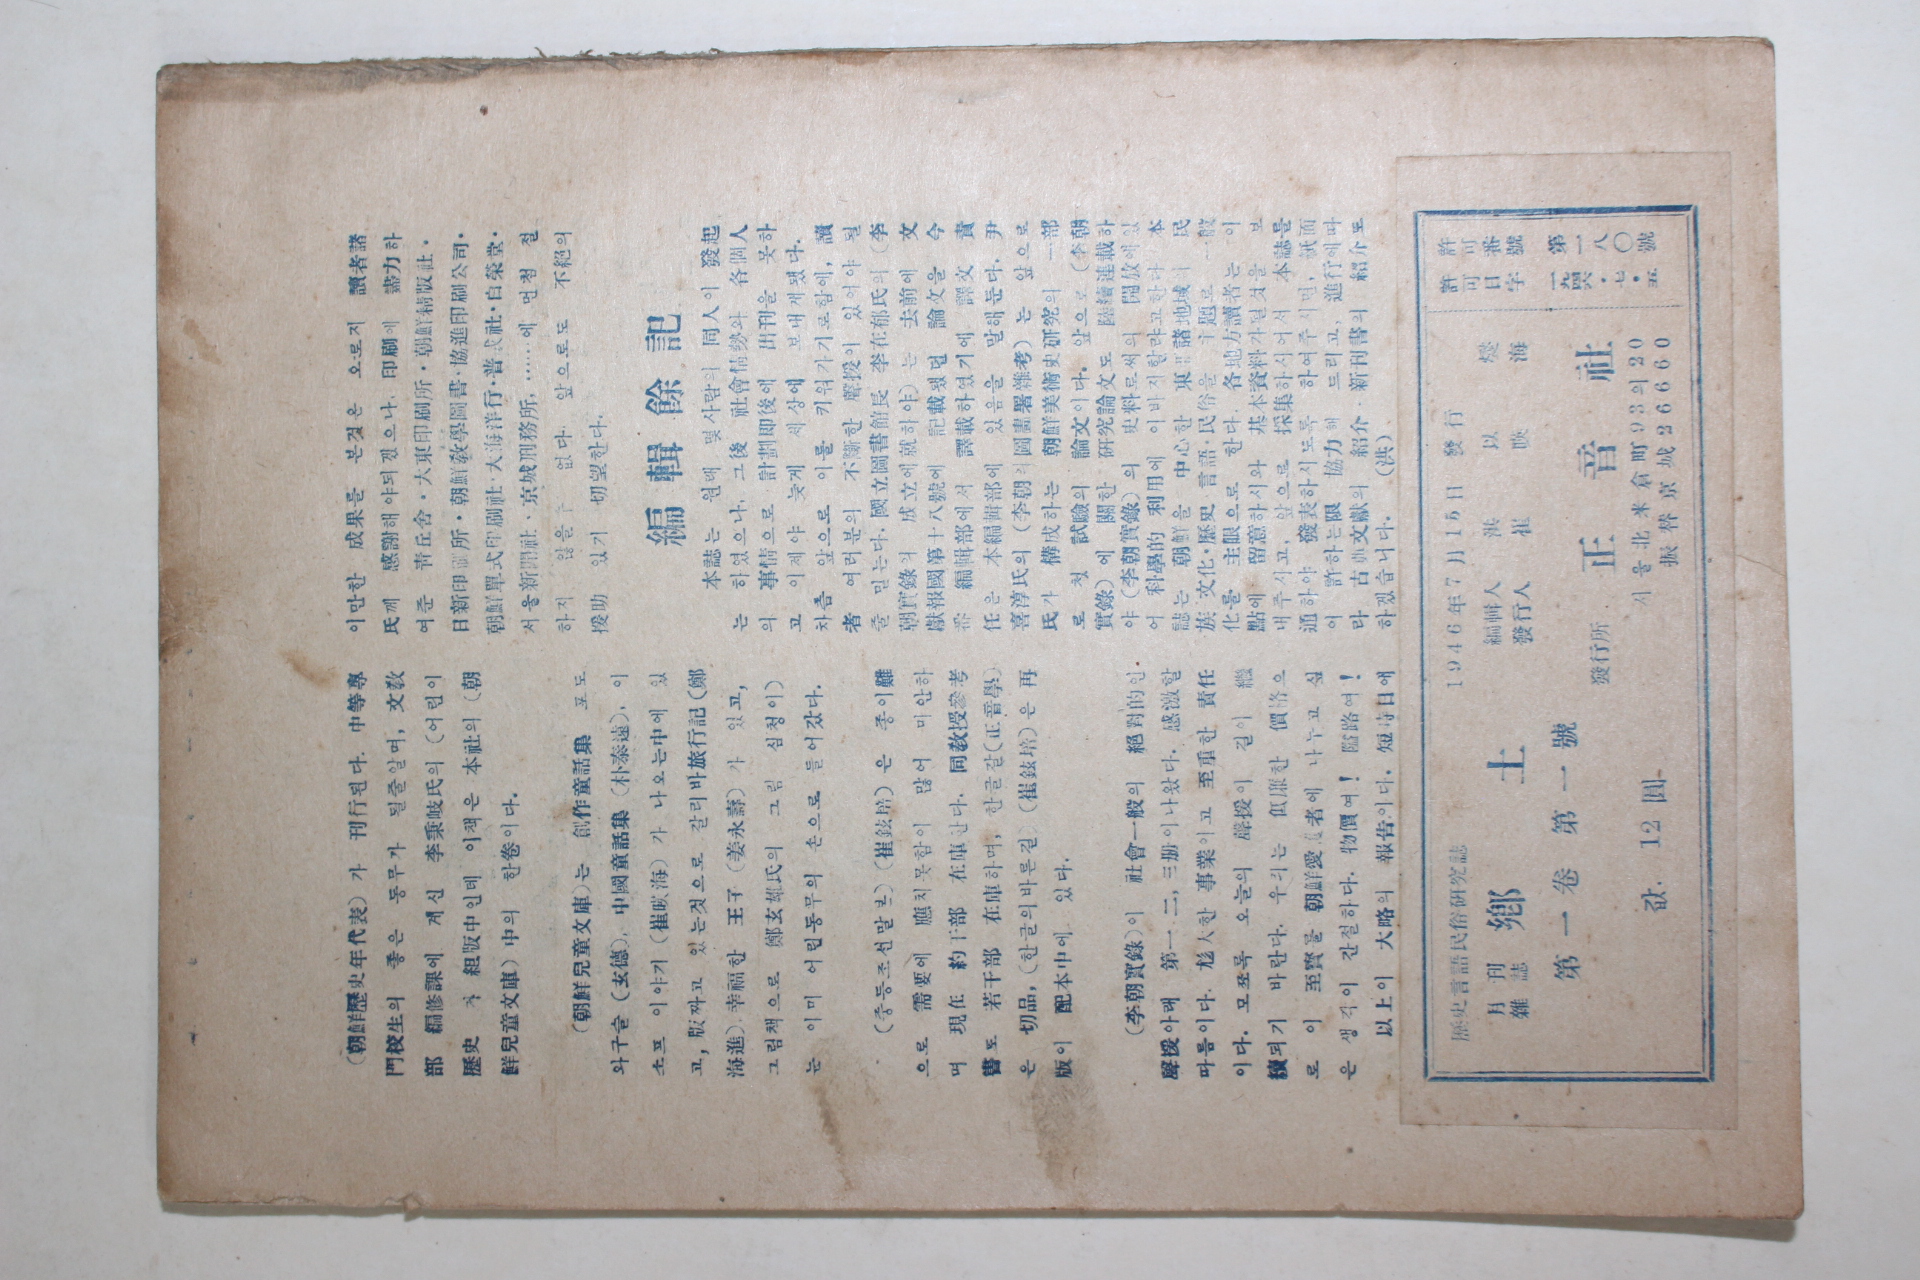 (朝鮮歷史年代表) 가 刊行된다. 中等專
門校生의 좋은 동무가 될줄알며, 文敎
部 編修課에 계신 李秉岐氏의 (어린이
歷史 가 組版中인데 이책은 本社의 (朝
鮮兒童文庫) 中의 한卷이다.
(朝鮮兒童文庫)는 創作童話集 포도
와구슬 (玄德), 中國童話集 (朴泰遠), 이
소프 이야기 (崔暎海) 가 나오는中에 있
고, 版짜고 있는것으로 갈리바旅行記 (鄭
海進) 幸福한 王子 (姜永壽) 가 있고,
그림책으로 鄭玄雄氏의 그림 심청이)
는 이미 어린동무의 손으로 들어갔다.
(중등조선말본) (崔鉉培) 은 종이難
으로 需要에 應치못함이 많어 미안하
며 現在 約干部 在庫한다. 同敎授參考
書도 若干部 在庫하며, 한글갈(正音學)
은 切品, (한글의바른길) (崔鉉培)은 再
版이 配本中에 있다.
(李朝實錄)이 社會一般의 絕對的인
聲援아래 第一 二, 三册이나왔다. 感激할
따름이다. 尨大한 事業이고 至重한 責任
이다. 모쪼록 오늘의 聲援이 길이 繼
續되기 바란다. 우리는 低廉한 價格으
로 이 至寶를 朝鮮愛 者에 나누고 싶
은 생각이 간절하다. 物價여! 隘路여!
以上이 大略의 報告이다. 短時日애
이만한 成果를 본것은 오로지 讀者諸
氏께 感謝해야되겠으나, 印刷에 盡力하
여준 靑丘舍・大東印刷所・朝鮮精版社・
日新印刷所・朝鮮敎學圖書・協進印刷公司・
朝鮮單式印刷社・大海洋行・普成社・白榮堂・
서울新聞社・京城刑務所, ……에 먼첨 절
하지 않을수 없다. 앞으로도 不絕의
援助 있기 切望한다.
編輯餘記
本誌는 원래 몇사람의 同人이 發起
는 하였으나, 그後 社會情勢와 各個人
의 事情으로 計劃即後에 出刊을 못하
고 이제야 늦게 세상에 보내게됐다.
차츰 앞으로 이를 키워가기로함에, 讀
者 여러분의 不斷한 聲援이 있어야 될
줄 믿는다. 國立圖書館長 李在郁氏의 (李
朝實錄의 成立에就하야) 는 去前에 文
獻報國第十八號에 記載됐던 論文을 今
番 編輯部에서 譯載하였기에 譯文 責
任은 本編輯部에 있음을 말해둔다. 尹
喜淳氏의 (李朝의圖畫署雜考) 는 앞으로
氏가 構成하는 朝鮮美術史硏究의 一部
로 첫 試驗의 論文이다. 앞으로 (李朝
實錄) 에 關한 硏究論文도 陸續連載하
야 (李朝實錄) 의 史料로써의 開放에있
어 科學的 利用에 이바지할랴고한다 本
誌는 朝鮮을 中心한 東 諸地域의 民
族 文化・歷史 言語・民俗을 主題로 一般
化를 主眼으로 한다. 各地方讀者는 이
點에 留意하시와 基本資料가될것을 보
내주시고, 앞으로 採集하시어서 本誌를
通하야 發表하시도록 하여주시면, 紙面
이 許하는限 協力해 드리고, 進行에따
라 古典文獻의 紹介・新刊書의 紹介도
하겠습니다. (洪)
歷史言語民俗硏究誌
月刊
雜誌 鄕土
第一卷 第一號
값. 12圓
1946年7月15日 發行
編輯人 洪以燮
發行人 崔暎海
發行所 正音社
서울北米倉町93의20
振替京城26660
許可番號 第一八〇號
許可日字 一九四六・七・五